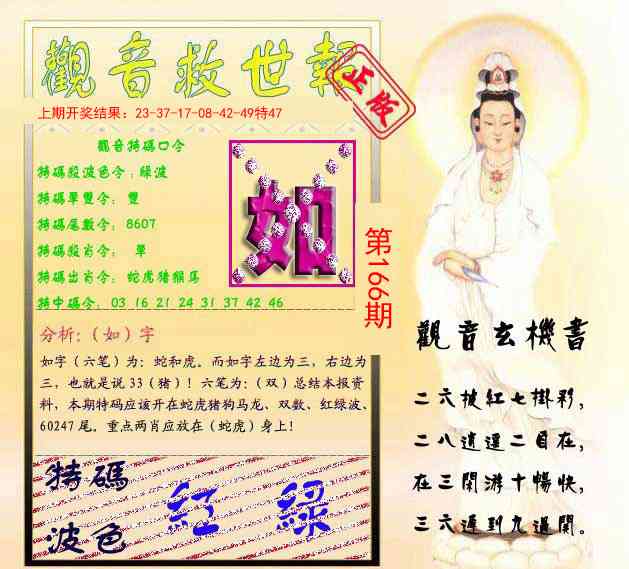 觀音救世報
正版
上期开奖结果：23-37-17-08-42-49特47
觀音特碼口令
特碼殺波色令：綠波
特碼單雙令： 雙
特碼尾數令： 8607
特碼殺肖令： 單
特碼出肖令： 蛇虎猪猴馬
特中碼令： 03 16 21 24 31 37 42 46
如
第166期
分析:（如）字
如字（六笔）为：蛇和虎。而如字左边为三，右边为
三，也就是说 33（猪）！六笔为：（双）总结本报资
料，本期特码应该开在蛇虎猪狗马龙、双数、红绿波、
60247 尾。重点两肖应放在（蛇虎）身上！
特碼
波色
紅 綠
觀音玄機書
二六披紅七掛彩，
二八逍遥二目在，
在三閑游十暢快，
三六遲到九過關。